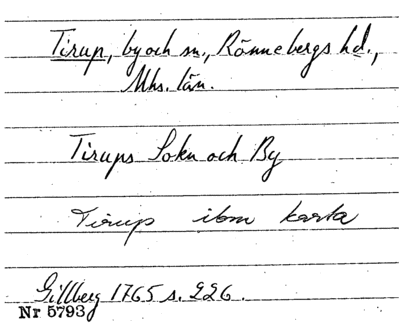 Tirup, by och sn., Rönnebergs hd.,
Mhs. län.
Tirups Sokn och By
Tirup ibm karta
Gillberg 1765 s. 226.
Nr 5793